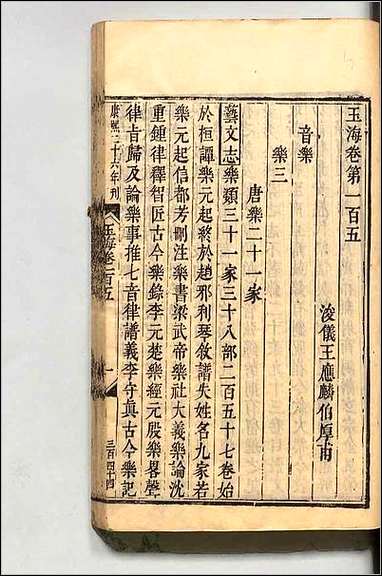 玉海卷第一百五
浚儀王應麟伯厚甫
音樂
樂三
唐樂二十一家
藝文志樂類三十一家三十八部二百五十七卷始
於桓譚樂元起終於趙邪利琴敘譜失姓名九家若
樂元起信都芳刪注樂書梁武帝樂社大義樂論沈
重鍾律釋智匠古今樂錄李元楚樂經元殷樂畧聲
律吉歸及論樂事推七音律譜義李守眞古今樂記
康熙二十六年刊
玉海卷一百五
一
三百四十四